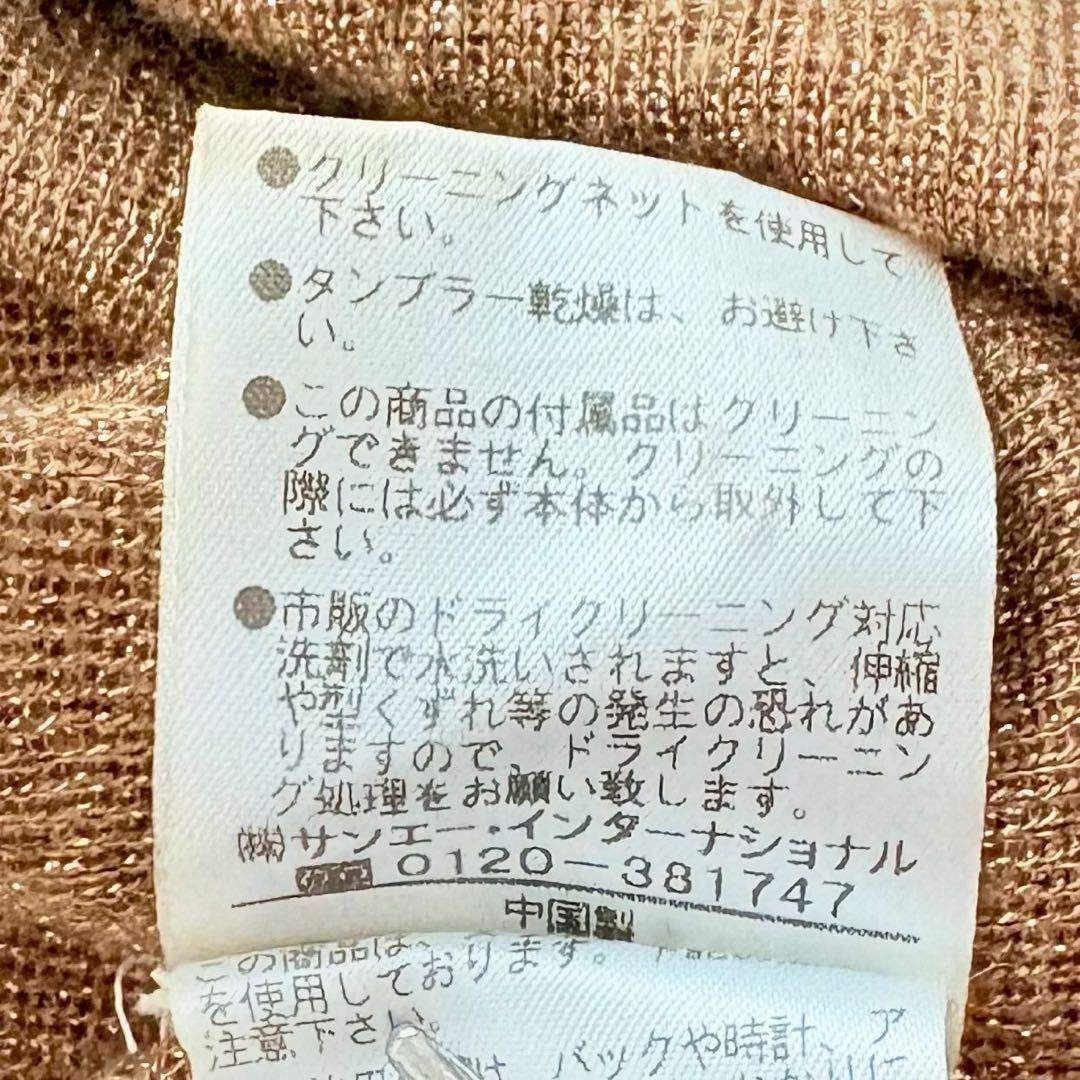 ●クリーニングネットを使用して
下さい。
●タンブラー乾燥は、お避け下さ
い。
●この商品の付属品はクリーニン
グできません。クリーニングの
際には必ず本体から取外して下
さい。
●市販のドライクリーニング対応
洗剤で水洗いされますと、伸縮
や型くずれ等の発生の恐れがあ
りますので、ドライクリーニン
グ処理をお願い致します。
㈱サンエー・インターナショナル
0120-381747
中国製
この商品は、
を使用しております。
注意下さい。
バックや時計、ア